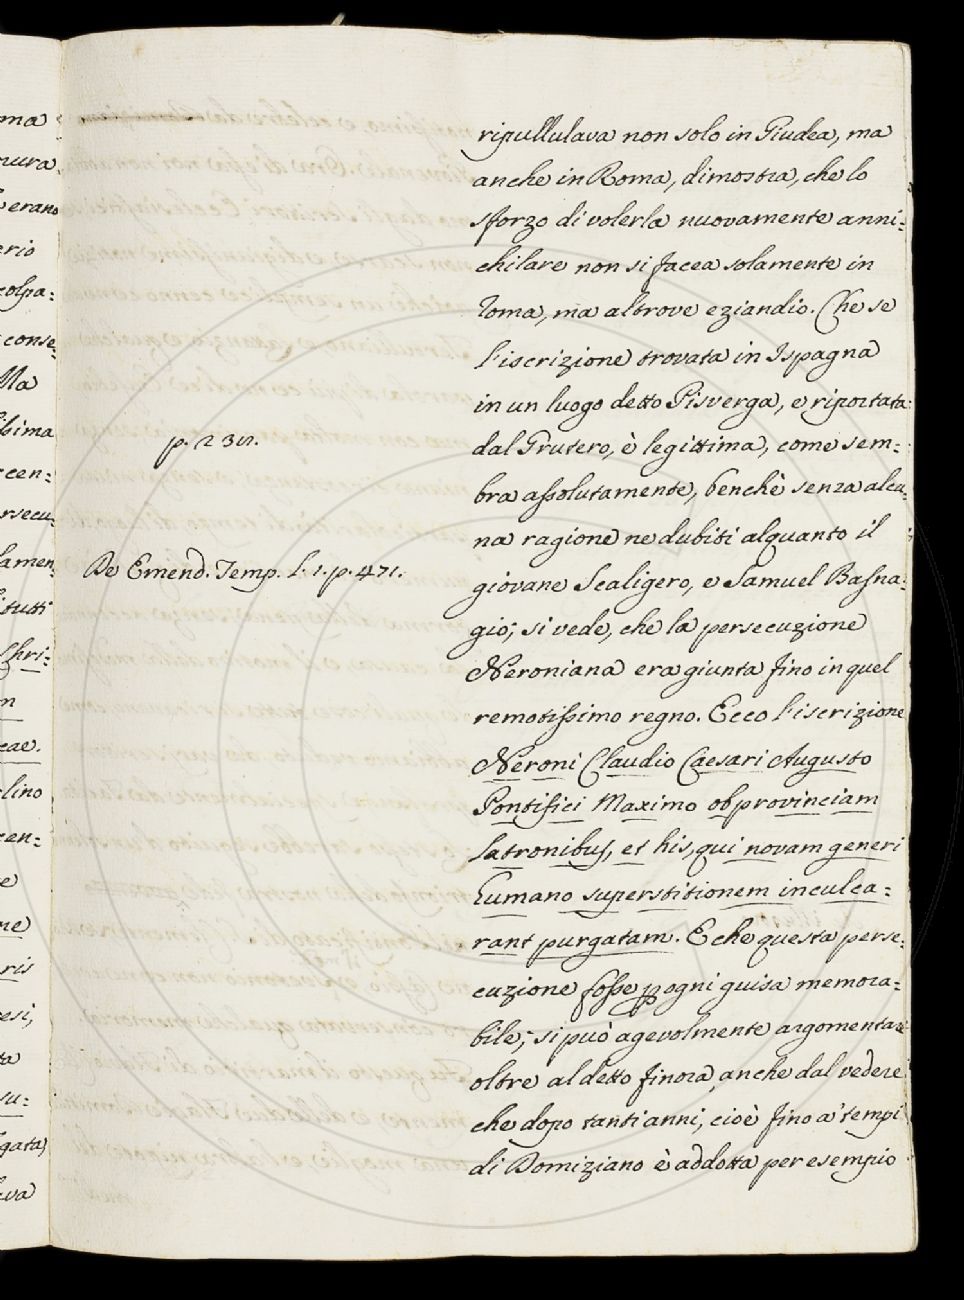 ma
nura
erano
erio
colpa:
conse:
Ma
ssima
cen:
rsecu:
lamen:
tutti
Chri:
m
eae.
lino
cen:
e
me
ris
esi,
ta
su:
gata)
ava
p. 238.
De Emend. Temp. l. 1. p. 471.
ripullulava non solo in Giudea, ma
anche in Roma, dimostra, che lo
sforzo di volerla nuovamente anni:
chilare non si facea solamente in
Roma, ma altrove eziandio. Che se
l'iscrizione trovata in Ispagna
in un luogo detto Pisverga, e riportata
dal Grutero, è legittima, come sem:
bra assolutamente, benchè senza alcu:
na ragione ne dubiti alquanto il
giovane Scaligero, e Samuel Basna:
gio; si vede, che la persecuzione
Neroniana era giunta fino in quel
remotissimo regno. Ecco l'iscrizione
Neroni Claudio Caesari Augusto
Pontifici Maximo ob provinciam
latronibus, et his, qui novam generi
humano superstitionem inculca:
rant purgatam. E che questa perse:
cuzione fosse p ogni guisa memora:
bile; si può agevolmente argomentare
oltre al detto finora, anche dal vedere
che dopo tanti anni, cioè fino a' tempi
di Domiziano è addotta per esempio